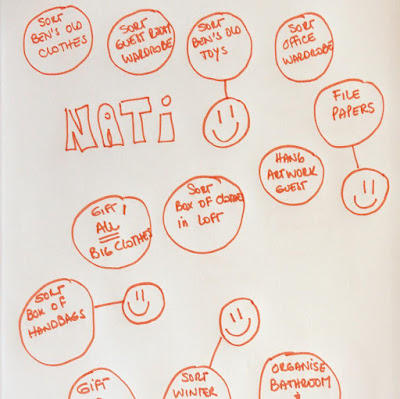 SORT
BEN'S OLD
CLOTHES
SORT
GUEST ROOM
WARDROBE
SORT
BEN'S OLD
TOYS
SORT
OFFICE
WARDROBE
NATi
FILE
PAPERS
HANG
ARTWORK
GUEST
GIFT
ALL
BIG CLOTHES
SORT
BOX OF CLOTHES
in LOFT
SORT
BOX OF
HANDBAGS
GIFT
SORT
WINTER
ORGANISE
BATHROOM